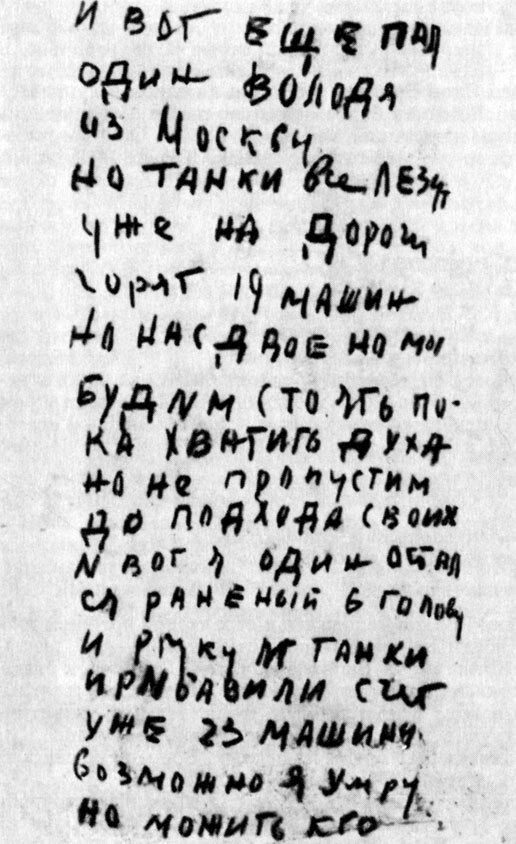 И ВОТ ЕЩЕ ПАЛ
ОДИН ВОЛОДЯ
ИЗ МОСКВЫ
НО ТАНКИ Все ЛЕЗУТ
УЖЕ НА ДОРОГИ
ГОРЯТ 19 МАШИН
НО НАС ДВОЕ НО МЫ
БУДИМ СТОЯТЬ ПО-
КА ХВАТИТЬ ДУХА
НО НЕ ПРОПУСТИМ
ДО ПОДХОДА СВОИХ
И ВОТ Я ОДИН ОСТАЛ
СЯ РАНЕНЫЙ В ГОЛОВУ
И РУКУ И ТАНКИ
ПРИБАВИЛИ СЧЕТ
УЖЕ 23 МАШИНЫ
ВОЗМОЖНО Я УМРУ
НО МОЖИТЬ КТО